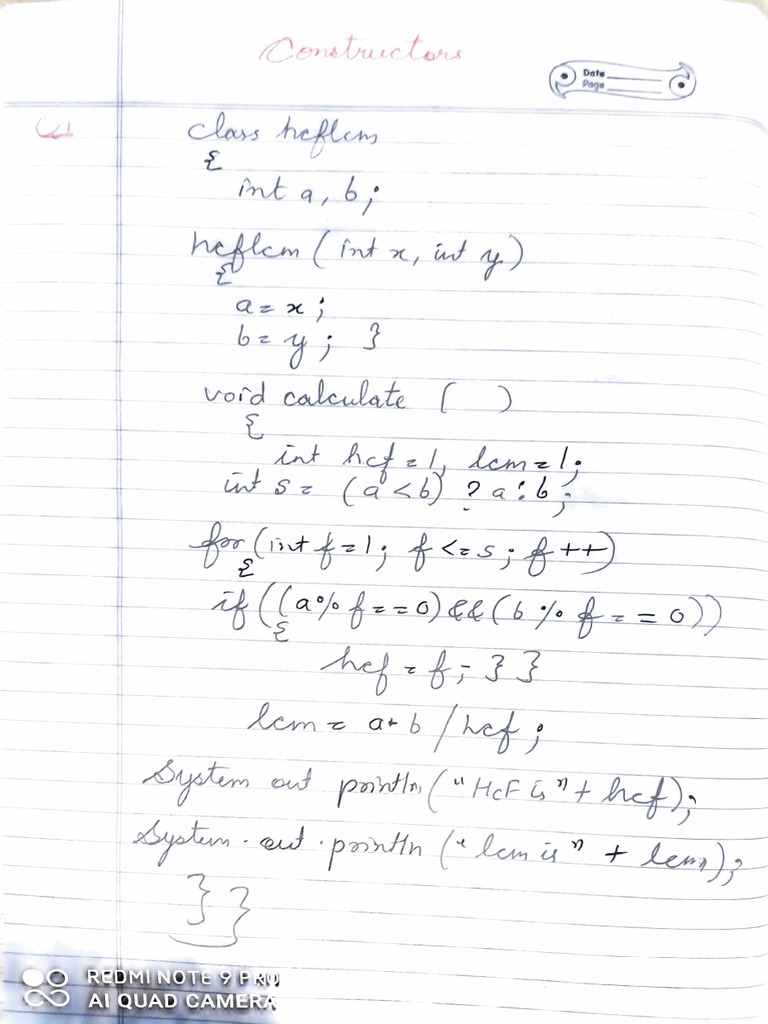 Constructors
Date
Page
Q1
class hcflcm
{
int a, b;
hcflcm (int x, int y)
{
a = x;
b = y; }
void calculate ( )
{
int hcf = 1, lcm = 1;
int s = (a < b) ? a : b;
for (int f = 1; f <= s; f ++)
{
if ((a % f == 0) && (b % f == 0))
{
hcf = f; } }
lcm = a * b / hcf;
System out println ("HCF is" + hcf);
System.out.println ("lcm is" + lcm);
} }
REDMI NOTE 9 PRO
AI QUAD CAMERA